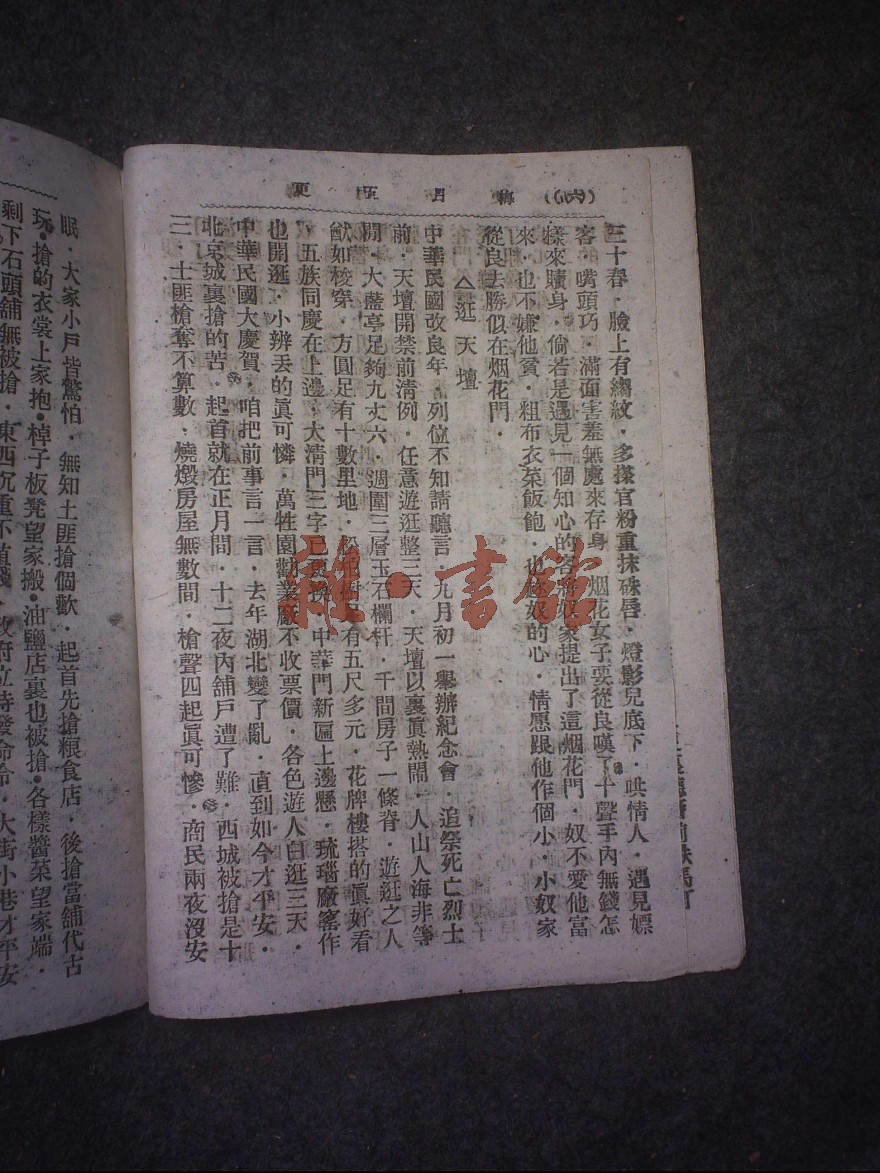 (六) 月五更
三十春．臉上有縐紋．多搽官粉重抹硃唇．燈影兒底下．哄情人．遇見嫖
客．嘴頭巧．滿面害羞無處來存身．烟花女子要從良嘆了十聲手內無錢怎
樣來贖身．倘若是遇見一個知心的客將奴家提出了這烟花門．奴不愛他富
來．也不嫌他貧．粗布衣菜飯飽．也 奴的心．情愿跟他作個小．小奴家
從良去勝似在烟花門．
△逛天壇
中華民國改良年．列位不知請聽言．九月初一舉辦紀念會．追祭死亡烈士
前．天壇開禁前清例．任意遊逛整三天．天壇以裏眞熱鬧．人山人海非等
閒．大藍亭足夠九丈六．週圍三層玉石欄杆．千間房子一條脊．遊逛之人
猷如梭穿．方圓足有十數里地． 有五尺多元．花牌樓搭的眞好看
．五族同慶在上邊．大清門三字已 ．中華門新匾上邊懸．琉璃廠窰作
也開逛．小辨丢的眞可憐．萬牲園勸業廠不收票價．各色遊人自逛三天．
中華民國大慶賀．咱把前事言一言．去年湖北變了亂．直到如今才平安．
北京城裏搶的苦．起首就在正月間．十二夜內舖戶遭了難．西城被搶是十
三．土匪槍奪不算數．燒燬房屋無數間．槍聲四起眞可慘．商民兩夜沒安
眠．大家小戶皆驚怕．無知土匪搶個歡．起首先搶粮食店．後搶當舖代古
玩．搶的衣裳上家抱．棹子板凳望家搬．油鹽店裏也被搶．各樣醬菜望家端．
剩下石頭舖無被搶．東西沉重不值錢．政府立時發命令．大街小巷才平安
雜·書館